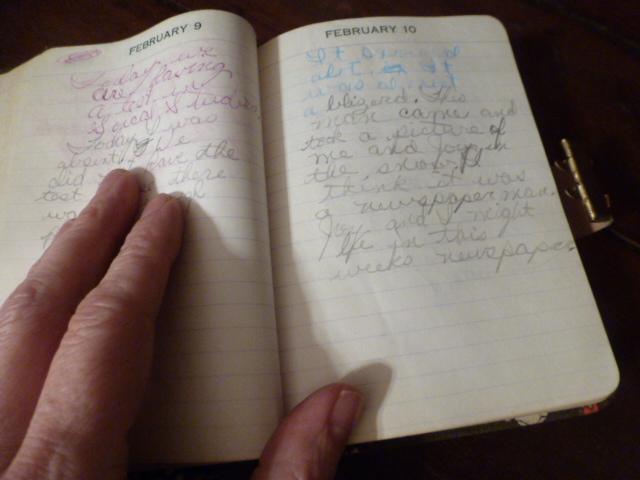 FEBRUARY 9
Today we
are having
a test in
Socal Studies.
Today I was
absent. We
did have the
test there
FEBRUARY 10
It snowed
alot. It
was
a blizard. This
man came and
took a picture of
me and Joy in
the snow. I
think it was
a newspaper man.
Joy and I might
be in this
weeks newspaper.